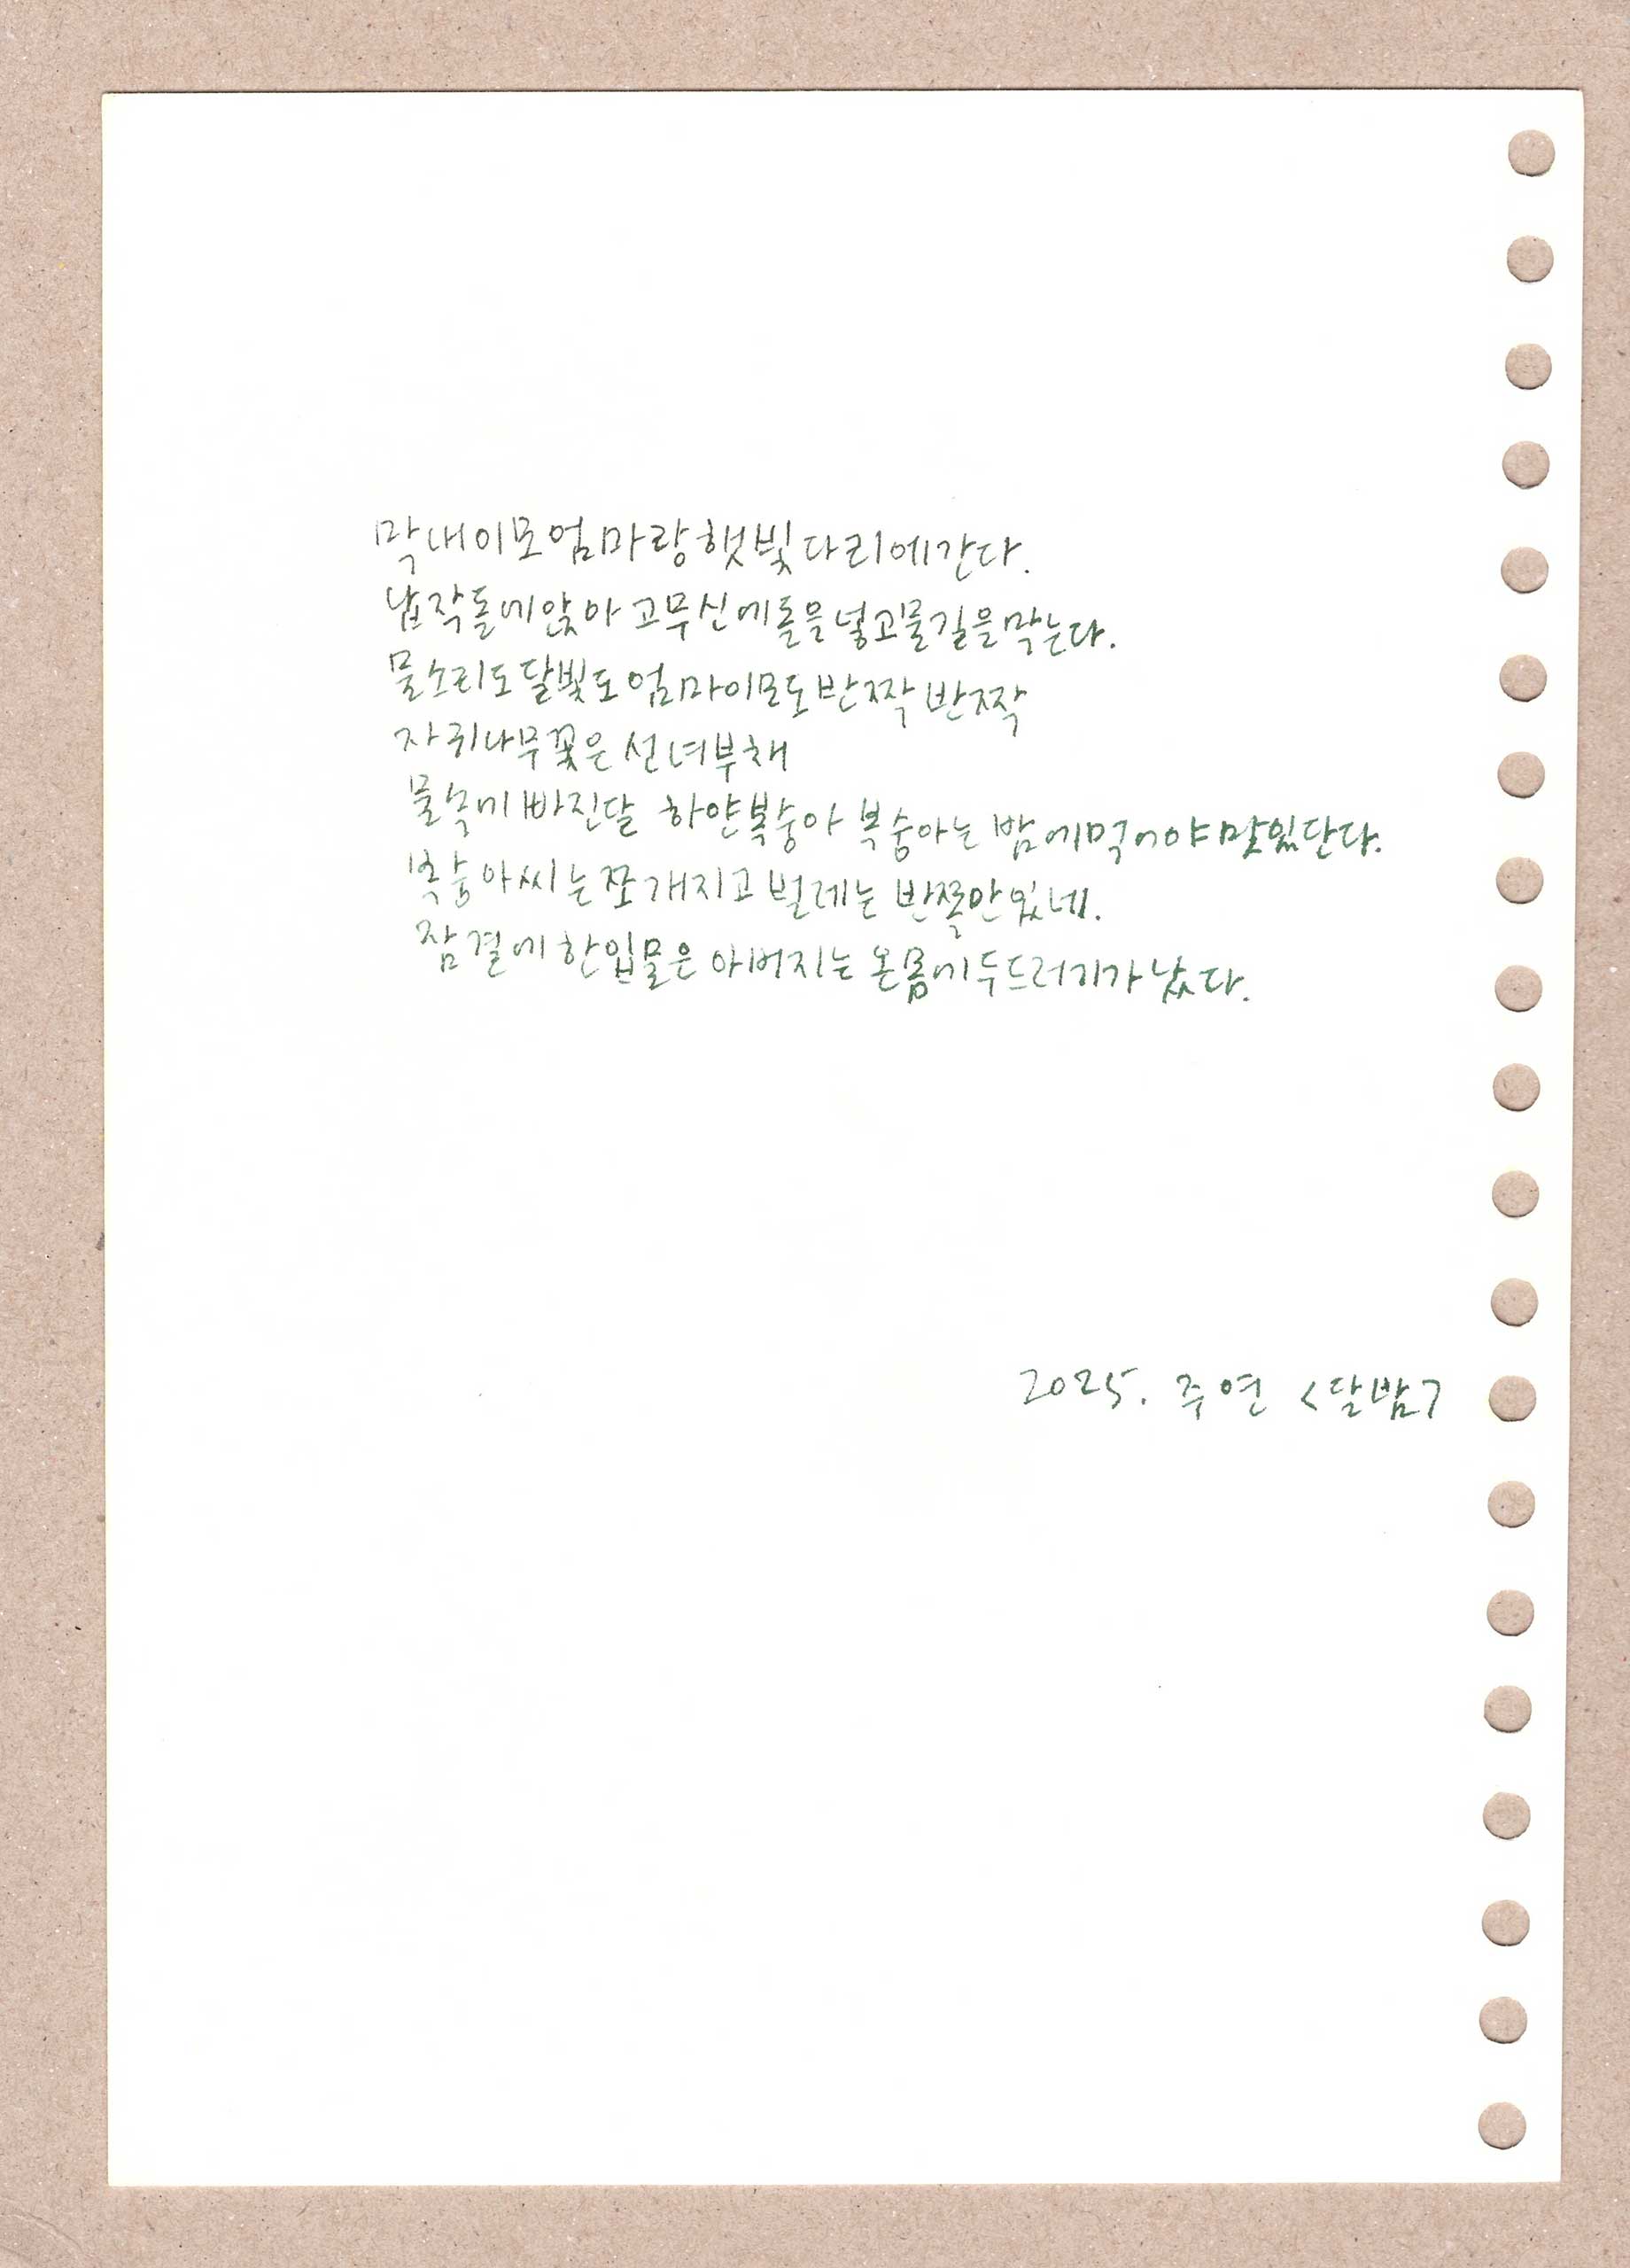 막내이모 엄마랑 햇빛다리에간다.
납작돌에앉아 고무신에돌을넣고물길을막는다.
물소리도달빛도엄마이모도반짝반짝
자귀나무꽃은선녀부채
물속에빠진달 하얀복숭아 복숭아는 밤에먹어야맛있단다.
복숭아씨는쪼개지고 벌레는 반쪽만있네.
잠결에한입물은 아버지는 온몸에두드러기가났다.
2025. 주연 <달밤>